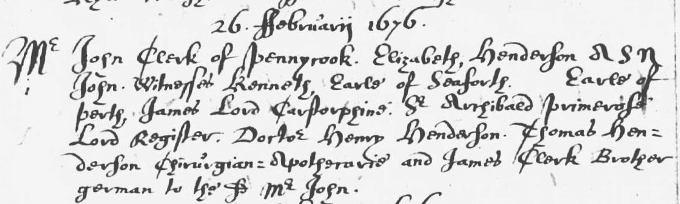 26. ffebruarij 1676.
Mr John Clerk of pennycook. Elizabeth, Henderson A S N
John. Witnesses Kenneth, Earle of Seaforth. Earle of
perth, James Lord Carstorphine. Sr Archibald primerose
Lord Register. Doctor Henry Henderson. Thomas Hen=
derson Chirurgian=Apothecarie and James Clerk Brother
german to the sd Mr John.